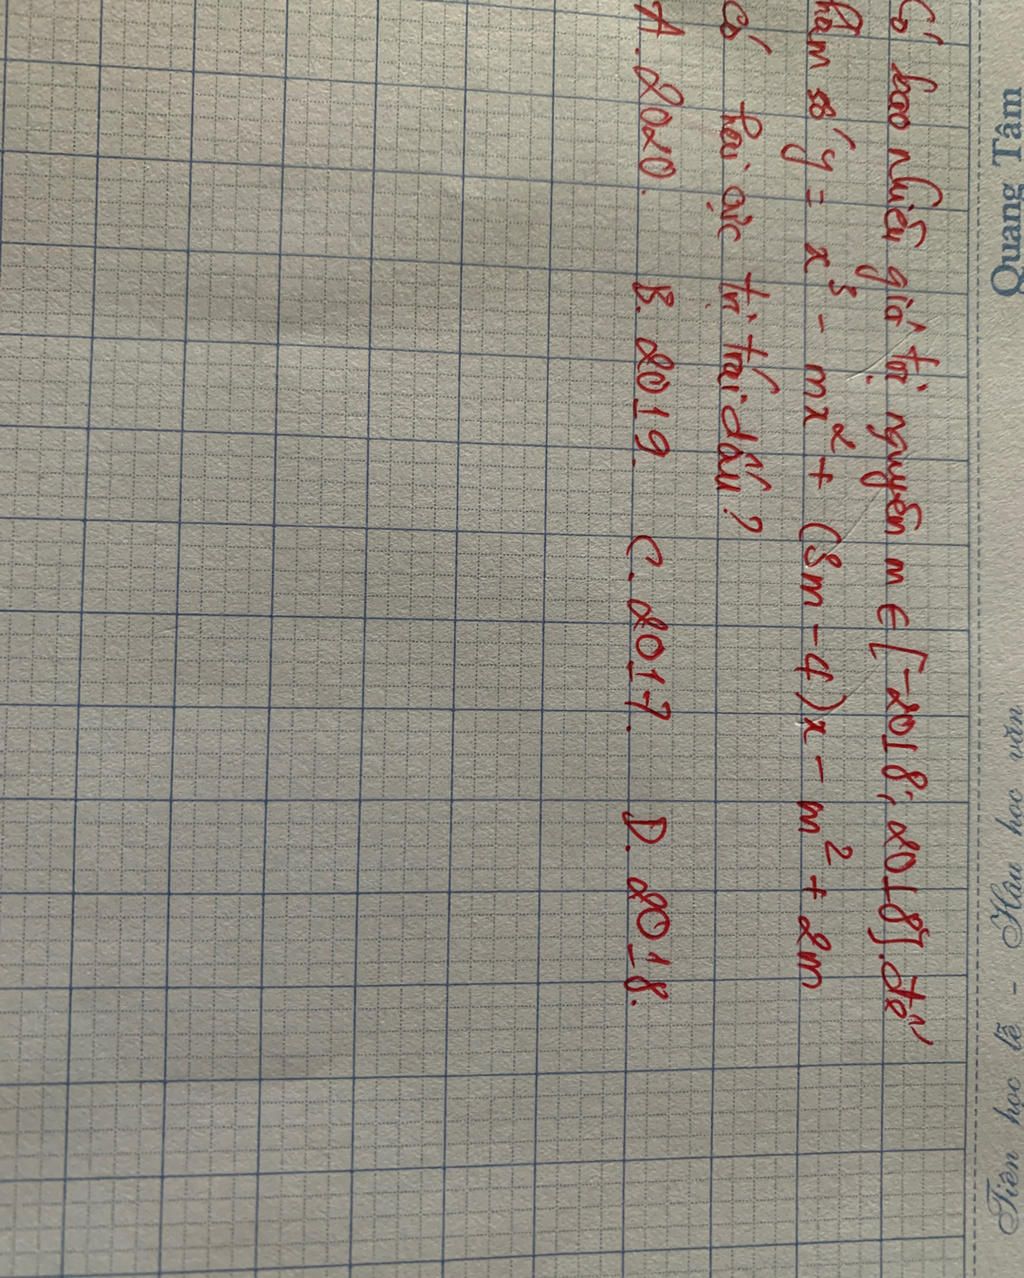 Quang Tâm
Tiên học lễ - Hậu học văn
Có bao nhiêu giá trị nguyên m ∈ [-2018; 2018] để
hàm số y = x³ - mx² + (3m - 4)x - m² + 2m
có hai cực trị trái dấu?
A. 2020. B. 2019. C. 2017. D. 2018.